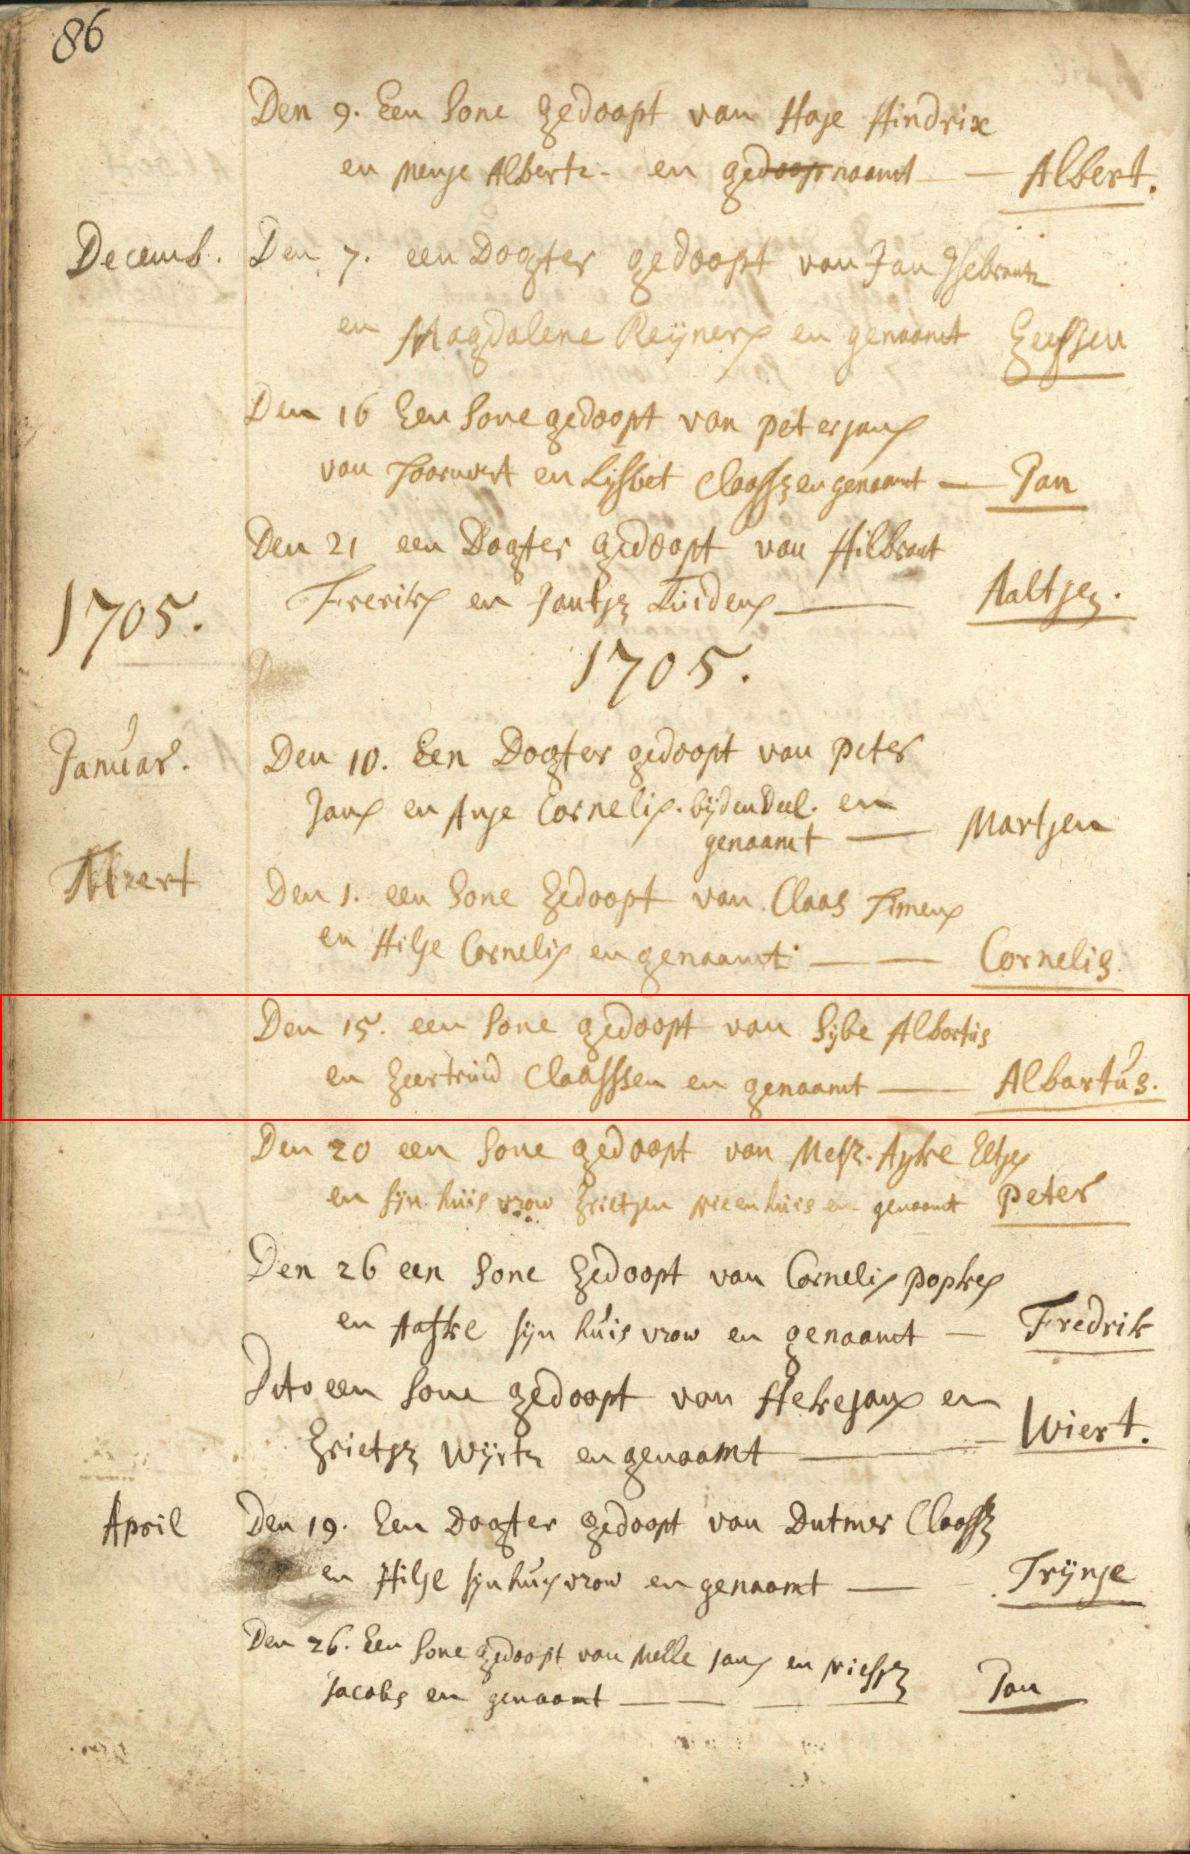 86
Den 9. Een Sone gedoopt van Haje Hindrix
en Menje Alberts - en gedoopnaamt - - Albert.
Decemb. Den 7. een Dogter gedoopt van Jan Isebrants
en Magdalene Reijners en genaamt Geessien
Den 16 Een Sone gedoopt van peter jans
van en Lijsbet Claassz en genaamt - Jan
Den 21 een Dogter gedoopt van Hilbrant
Freriks en Jantje Luidens - Aaltjen.
1705. 1705.
Januar. Den 10. Een Dogter gedoopt van peter
Jans en Anje Cornelis. bijden Deel. en
genaamt - Martjen
Meert Den 1. een Sone gedoopt van Claas Timens
en Hilje Cornelis en genaamt - - Cornelis
Den 15. een Sone gedoopt van Sijbe Albartus
en Geertruid Claasssen en genaamt - Albartus.
Den 20 een Sone gedoopt van Aijke Eltjes
en sijn huis vrow Grietjen en genaamt peter
Den 26 een Sone gedoopt van Cornelis popkes
en Aafke sijn huis vrow en genaamt - Fredrik
Dito een Sone gedoopt van Heke jans en
Grietje Wijrts en genaamt - Wiert.
April Den 19. Een Dogter gedoopt van Dutmer Claassz
en Hilje sijn huys vrow en genaamt - Trijnje
Den 26. Een Sone gedoopt van Melle jans en
Jacobs en genaamt - - - Jan